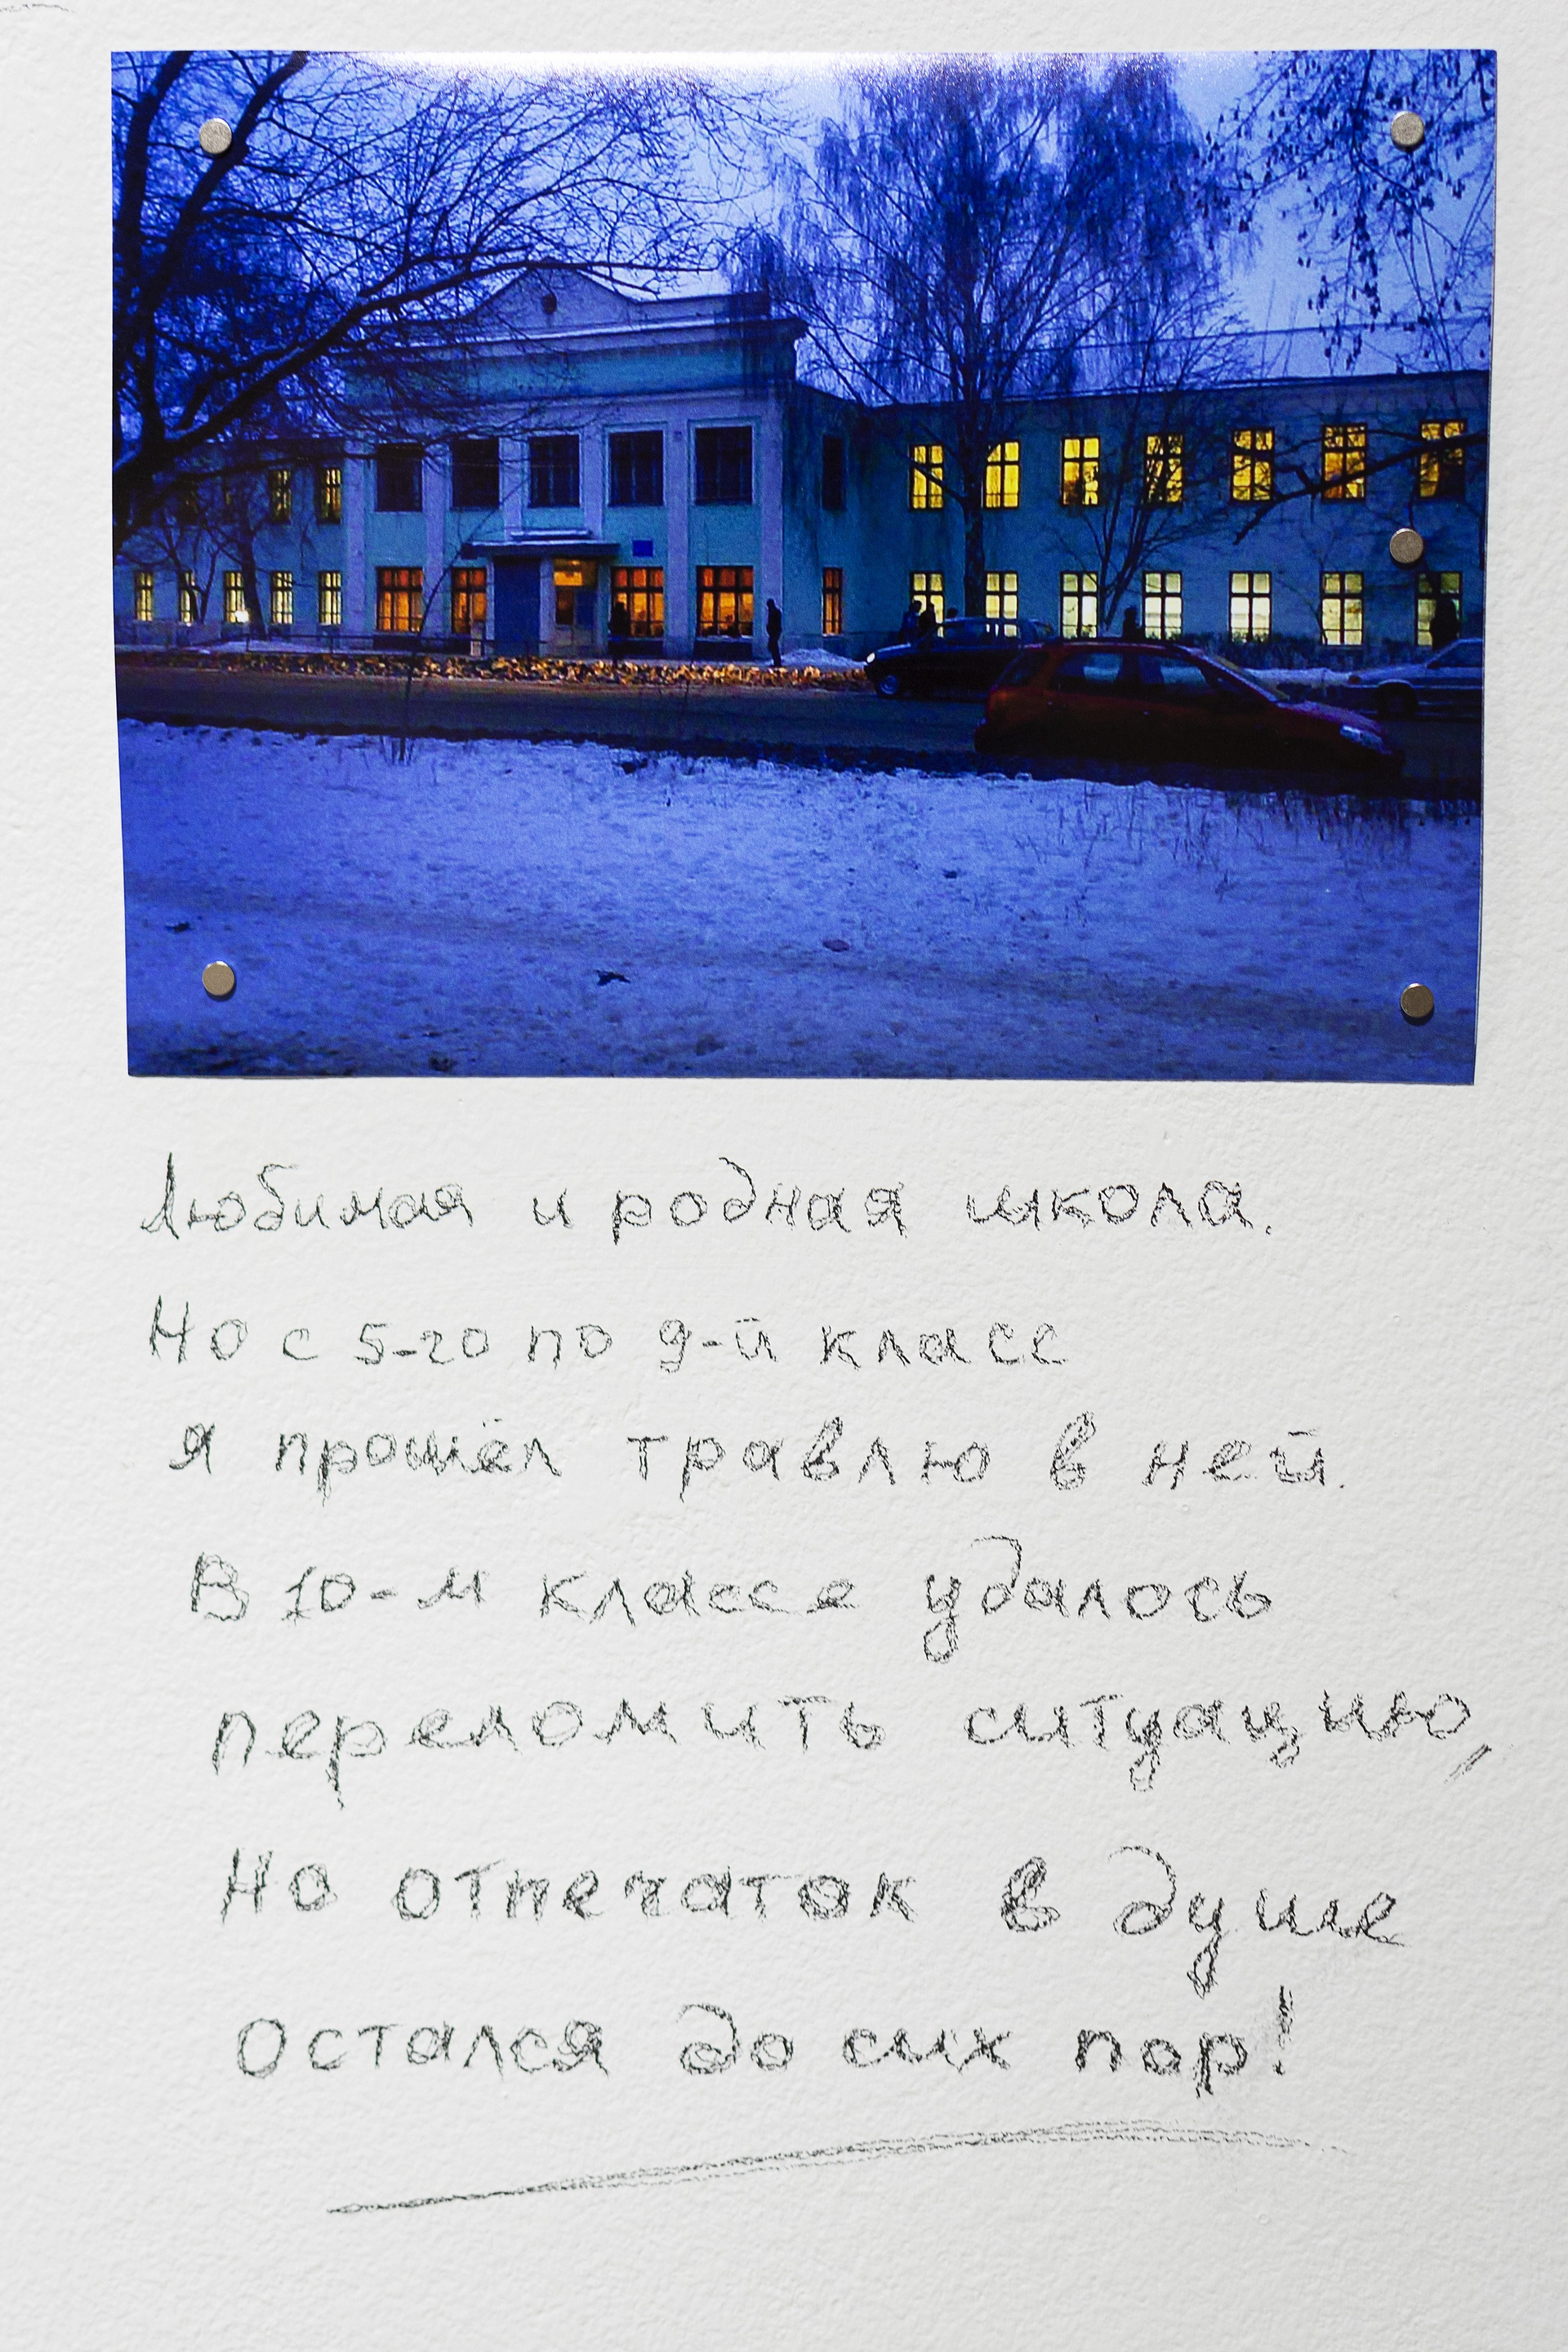 Любимая и родная школа.
Но с 5-го по 9-й класс
я прошёл травлю в ней.
В 10-м классе удалось
переломить ситуацию,
Но отпечаток в душе
Остался до сих пор!